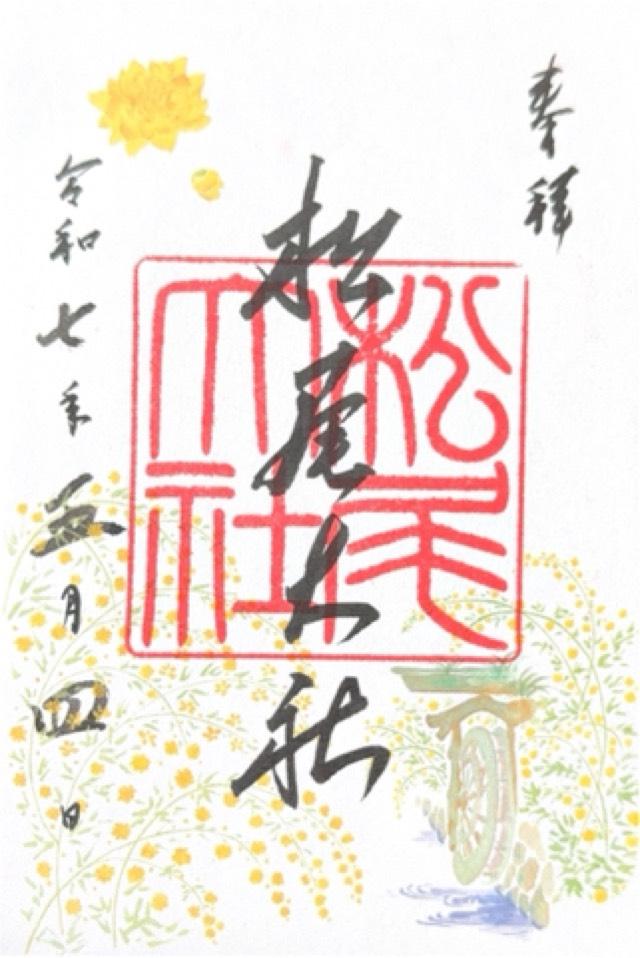 奉拝
松尾大社
松尾
大社
令和七年五月四日